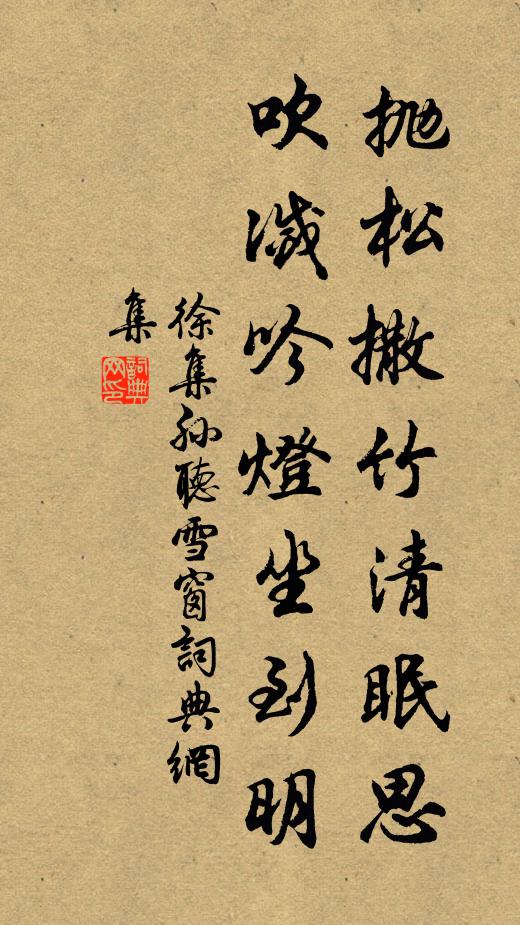 抛松撒竹清眠思
吹滅吟燈坐到明
徐集孙聽雪窗詞典網
集
詞典
网印